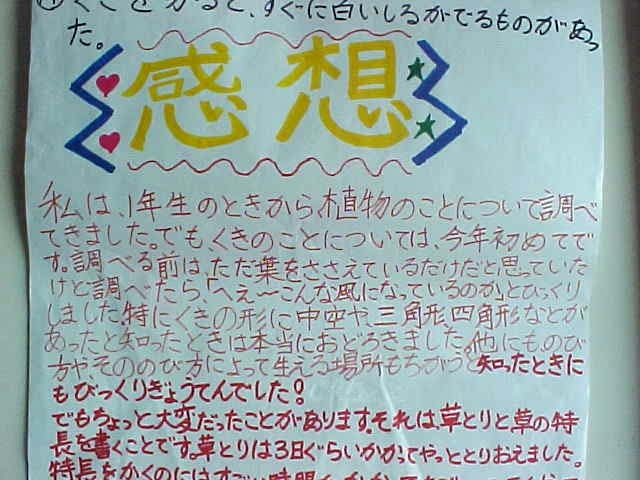 くきをかると、すぐに白いしるがでるものがあっ
た。
感想
私は、1年生のときから植物のことについて調べ
てきました。でもくきのことについては、今年初めてで
す。調べる前は、ただ葉をささえているだけだと思っていた
けど調べたら、「へぇ〜こんな風になっているのか」とびっくり
しました。特にくきの形に中空や、三角形、四角形などが
あったと知ったときは本当におどろきました。他にものび
方やそののび方によって生える場所もちがうと知ったときに
もびっくりぎょうてんでした!
でもちょっと大変だったことがあります。それは、草とりと草の特
長を書くことです。草とりは3日ぐらいかかってやっととりおえました。
特長をかくのにはすごい時間